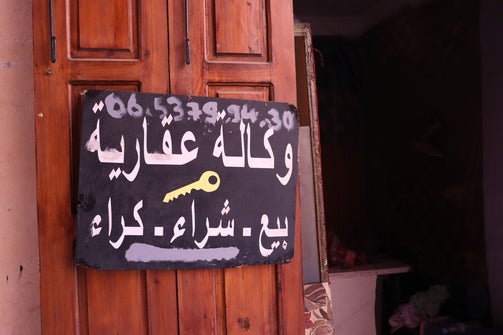 06.5379.94.30
وكالة عقارية
بيع . شراء . كراء